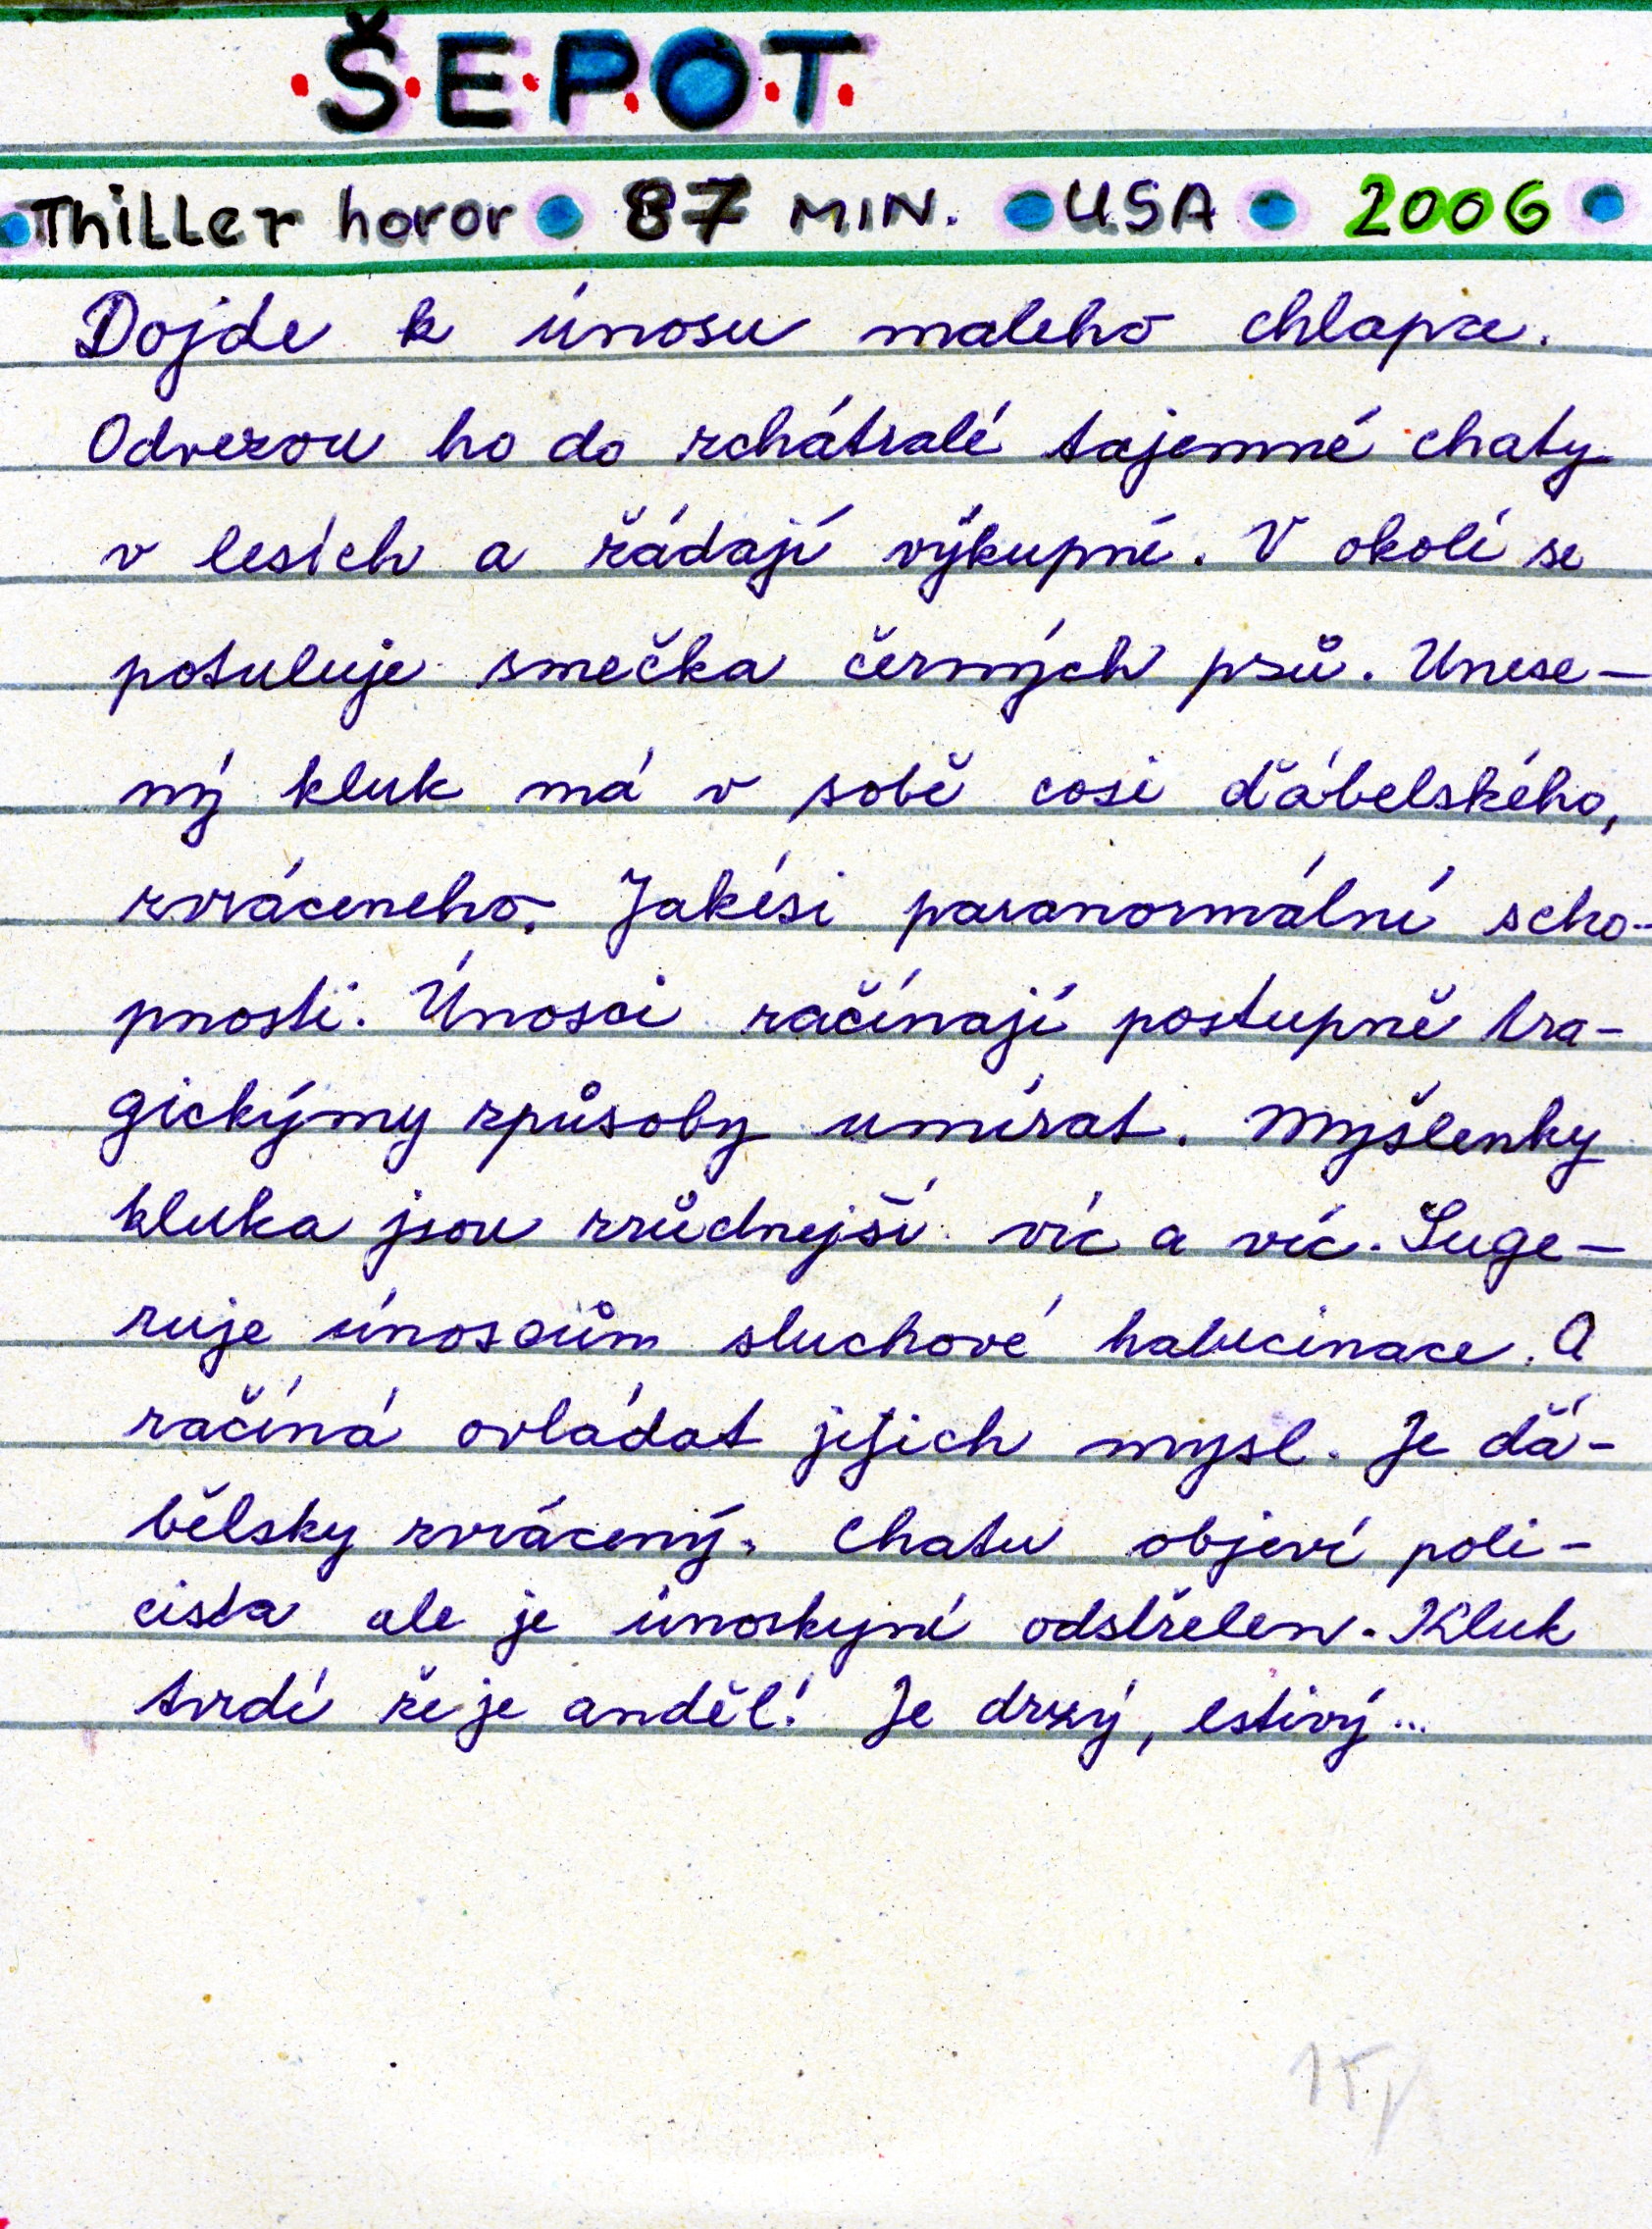 ŠEPOT
Thiller horor 87 MIN. USA 2006
Dojde k únosu malého chlapce.
Odvezou ho do zchátralé tajemné chaty
v lesích a žádají výkupné. V okolí se
potuluje smečka černých psů. Unese-
ný kluk má v sobě cosi ďábelského,
zvráceného. Jakési paranormální scho-
pnosti. Únosci začínají postupně tra-
gickýmy způsoby umírat. Myšlenky
kluka jsou zrůdnejší víc a víc. Suge-
ruje únoscům sluchové halucinace. A
začíná ovládat jejich mysl. Je ďá-
bělsky zvrácený. Chatu objeví poli-
cista ale je únoskyní odstřelen. Kluk
tvrdí že je anděl! Je drzý, lstivý...